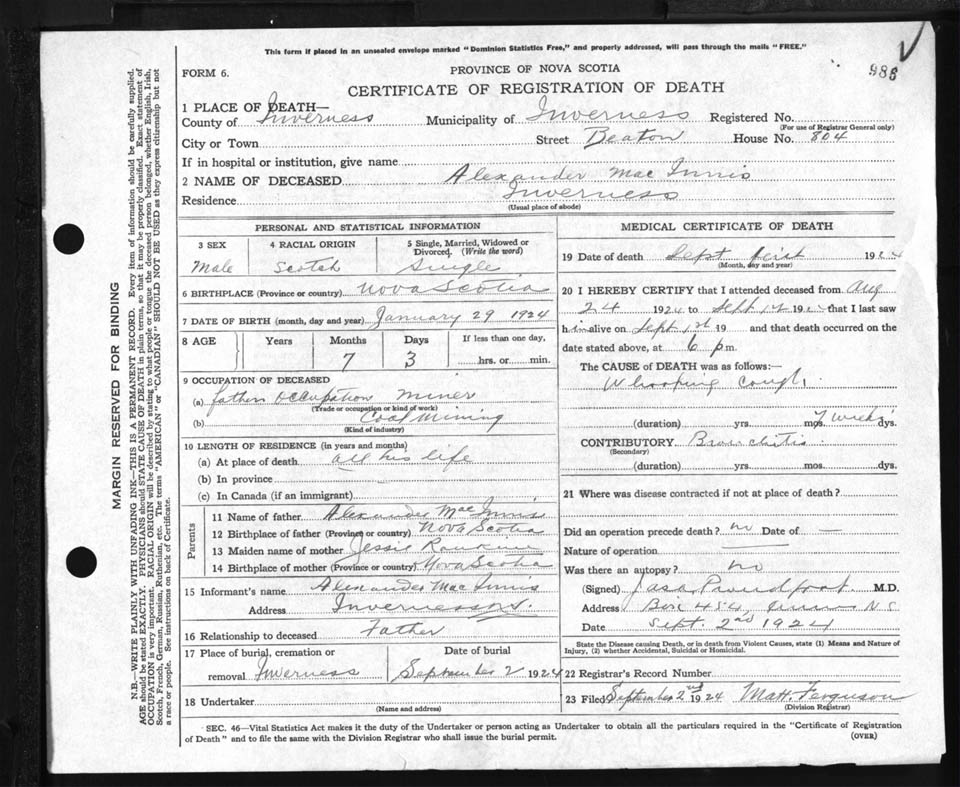 This form if placed in an unsealed envelope marked "Dominion Statistics Free," and properly addressed, will pass through the mails "FREE."
986
FORM 6.
PROVINCE OF NOVA SCOTIA
CERTIFICATE OF REGISTRATION OF DEATH
1 PLACE OF DEATH—
County of Inverness Municipality of Inverness Registered No.
(For use of Registrar General only)
City or Town Street Beaton House No. 804
If in hospital or institution, give name
2 NAME OF DECEASED Alexander Mac Innis
Residence Inverness
(Usual place of abode)
PERSONAL AND STATISTICAL INFORMATION
3 SEX 4 RACIAL ORIGIN 5 Single, Married, Widowed or Divorced. (Write the word)
Male Scotch Single
6 BIRTHPLACE (Province or country) Nova Scotia
7 DATE OF BIRTH (month, day and year) January 29 1924
8 AGE Years Months Days If less than one day,
7 3 hrs. or min.
9 OCCUPATION OF DECEASED
(a) fathers occupation miner
(Trade or occupation or kind of work)
(b) Coal Mining
(Kind of industry)
10 LENGTH OF RESIDENCE (in years and months)
(a) At place of death all his life
(b) In province
(c) In Canada (if an immigrant)
Parents
11 Name of father Alexander Mac Innis
12 Birthplace of father (Province or country) Nova Scotia
13 Maiden name of mother Jessie Rankin
14 Birthplace of mother (Province or country) Nova Scotia
15 Informant's name Alexander Mac Innis
Address Inverness
16 Relationship to deceased Father
17 Place of burial, cremation or removal Inverness Date of burial September 2 1924
18 Undertaker
(Name and address)
MEDICAL CERTIFICATE OF DEATH
19 Date of death Sept first 1924
(Month, day and year)
20 I HEREBY CERTIFY that I attended deceased from Aug
24 1924 to Sept 1st 19 that I last saw
him alive on Sept 1st 19 and that death occurred on
date stated above, at 6 p m.
The CAUSE of DEATH was as follows:—
Whooping cough
(duration) yrs. mos. dys.
CONTRIBUTORY Bronchitis
(Secondary)
(duration) yrs. mos. dys.
21 Where was disease contracted if not at place of death?
Did an operation precede death? no Date of
Nature of operation
Was there an autopsy? no
(Signed) Proudfoot M.D.
Address Box 454, N S
Date Sept. 2nd 1924
State the Disease causing Death, or in death from Violent Causes, state (1) Means and Nature of Injury, (2) whether Accidental, Suicidal or Homicidal.
22 Registrar's Record Number
23 Filed September 2nd 1924 Matt. Ferguson
(Division Registrar)
SEC. 46—Vital Statistics Act makes it the duty of the Undertaker or person acting as Undertaker to obtain all the particulars required in the "Certificate of Registration
of Death" and to file the same with the Division Registrar who shall issue the burial permit.
(OVER)
MARGIN RESERVED FOR BINDING
N.B.—WRITE PLAINLY WITH UNFADING INK—THIS IS A PERMANENT RECORD. Every item of information should be carefully supplied.
AGE should be stated EXACTLY. PHYSICIANS should STATE CAUSE OF DEATH in plain terms, so that it may be properly classified. Exact statement of
OCCUPATION is very important. RACIAL ORIGIN will be described by stating to what people or tongue the deceased person belonged, whether English, Irish,
Scotch, French, German, Russian, Ruthenian, etc. The terms "AMERICAN" or "CANADIAN" SHOULD NOT BE USED as they express citizenship but not
a race or people. See instructions on back of Certificate.